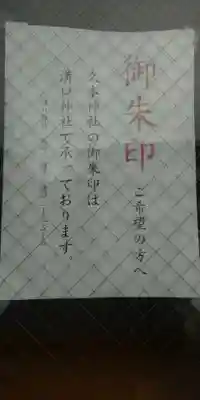 御朱印
ご希望の方へ
久本神社の御朱印は
溝口神社で承っております。